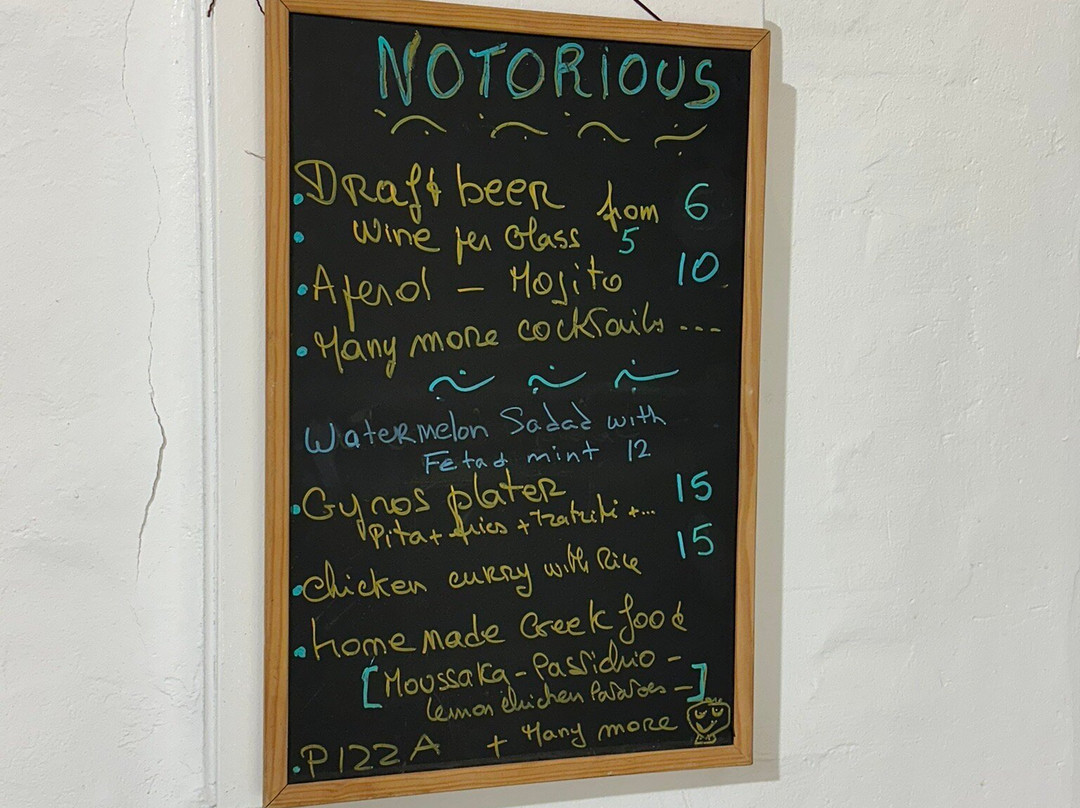 NOTORiOUS
Draft beer from 6
Wine per Glass 5
Aperol - Mojito 10
Many more cocktails ---
Watermelon Salad with
Feta & mint 12
Gyros plater 15
Pita + fries + Tzatziki +...
Chicken curry with Rice 15
home made Greek food
[Moussaka - Pastichio -
lemon chicken Potatoes -]
PIZZA + Many more